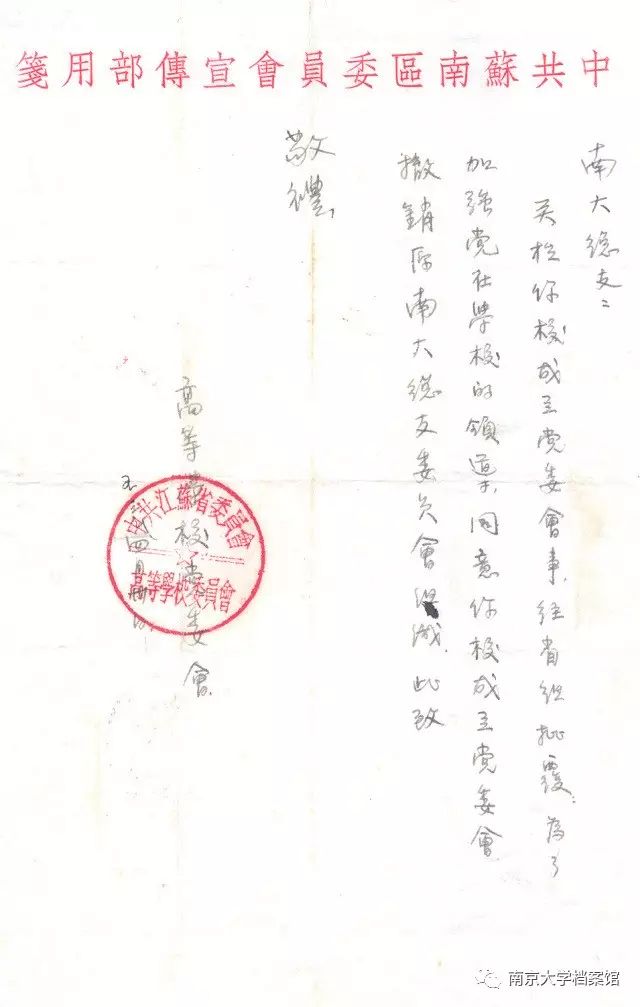 中共蘇南區委員會宣傳部用箋
南大總支：
关於你校成立党委會事，经省组批覆：為了
加強党在學校的領導，同意你校成立党委會
撤銷原南大總支委员會 此致
敬禮，
高等學校党委會
四月
中共江蘇省委員會
高等學校委員會
南京大学档案馆